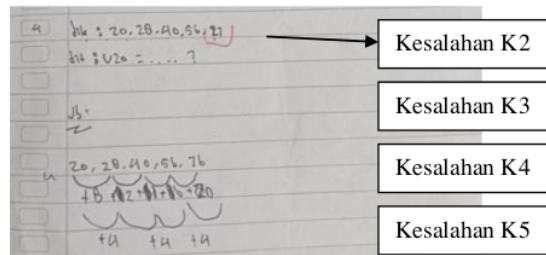 4 dik : 20, 28, 40, 56,
dit : U20 = .... ?
Jb.
20, 28, 40, 56, 76
+8 +12 +16 +20
+4 +4 +4
Kesalahan K2
Kesalahan K3
Kesalahan K4
Kesalahan K5